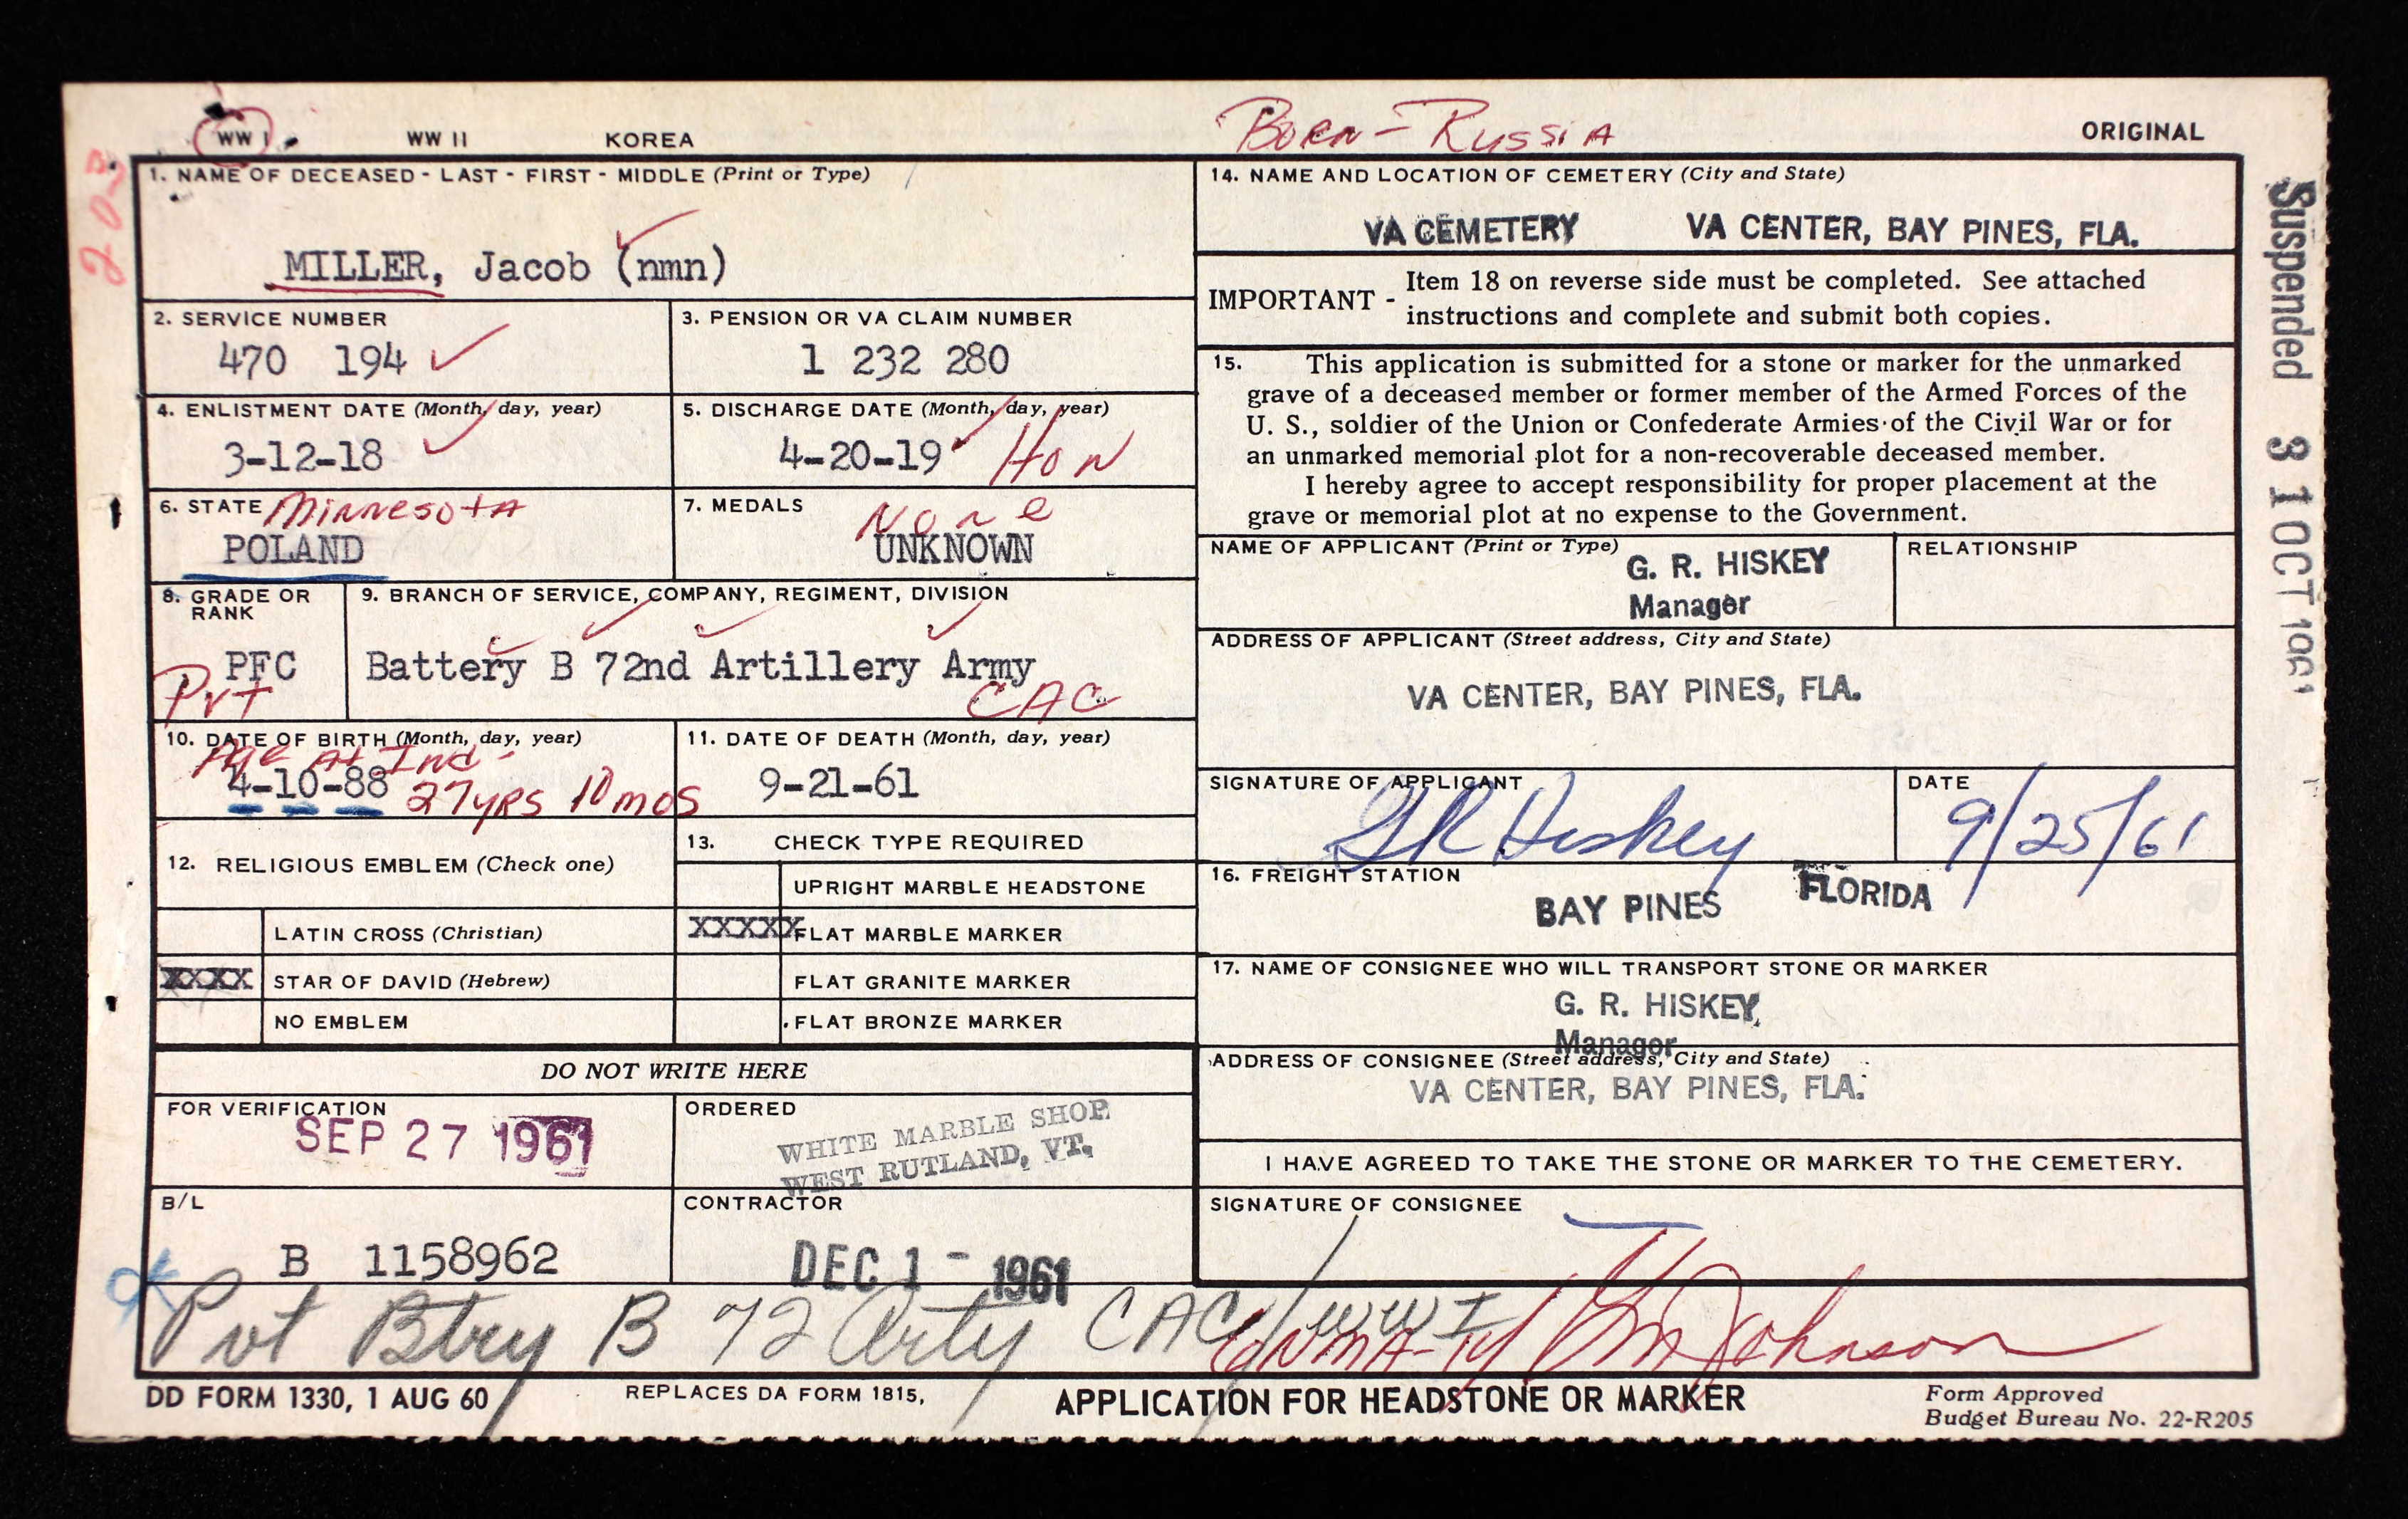 WW I WW II KOREA Born - Russia ORIGINAL
203
1. NAME OF DECEASED - LAST - FIRST - MIDDLE (Print or Type)
MILLER, Jacob (nmn)
2. SERVICE NUMBER
470 194
3. PENSION OR VA CLAIM NUMBER
1 232 280
4. ENLISTMENT DATE (Month, day, year)
3-12-18
5. DISCHARGE DATE (Month, day, year)
4-20-19 Hon
6. STATE Minnesota
POLAND
7. MEDALS
None
UNKNOWN
8. GRADE OR RANK
PFC
Pvt
9. BRANCH OF SERVICE, COMPANY, REGIMENT, DIVISION
Battery B 72nd Artillery Army
CAC
10. DATE OF BIRTH (Month, day, year)
Age At Ind -
4-10-88 27 yrs 10 mos
11. DATE OF DEATH (Month, day, year)
9-21-61
12. RELIGIOUS EMBLEM (Check one)
LATIN CROSS (Christian)
XXXX STAR OF DAVID (Hebrew)
NO EMBLEM
13. CHECK TYPE REQUIRED
UPRIGHT MARBLE HEADSTONE
XXXXX FLAT MARBLE MARKER
FLAT GRANITE MARKER
FLAT BRONZE MARKER
DO NOT WRITE HERE
FOR VERIFICATION
SEP 27 1961
ORDERED
WHITE MARBLE SHOP
WEST RUTLAND, VT.
B/L
B 1158962
CONTRACTOR
DEC 1 - 1961
14. NAME AND LOCATION OF CEMETERY (City and State)
VA CEMETERY VA CENTER, BAY PINES, FLA.
IMPORTANT - Item 18 on reverse side must be completed. See attached
instructions and complete and submit both copies.
15. This application is submitted for a stone or marker for the unmarked
grave of a deceased member or former member of the Armed Forces of the
U. S., soldier of the Union or Confederate Armies of the Civil War or for
an unmarked memorial plot for a non-recoverable deceased member.
I hereby agree to accept responsibility for proper placement at the
grave or memorial plot at no expense to the Government.
NAME OF APPLICANT (Print or Type)
G. R. HISKEY
Manager
RELATIONSHIP
ADDRESS OF APPLICANT (Street address, City and State)
VA CENTER, BAY PINES, FLA.
SIGNATURE OF APPLICANT
GR Hiskey
DATE
9/25/61
16. FREIGHT STATION
BAY PINES FLORIDA
17. NAME OF CONSIGNEE WHO WILL TRANSPORT STONE OR MARKER
G. R. HISKEY,
Manager
ADDRESS OF CONSIGNEE (Street address, City and State)
VA CENTER, BAY PINES, FLA.
I HAVE AGREED TO TAKE THE STONE OR MARKER TO THE CEMETERY.
SIGNATURE OF CONSIGNEE
ok
Pvt Btry B 72 Arty CAC / WW I
Johnson
DD FORM 1330, 1 AUG 60
REPLACES DA FORM 1815,
APPLICATION FOR HEADSTONE OR MARKER
Form Approved
Budget Bureau No. 22-R205
Suspended 31 OCT 1961